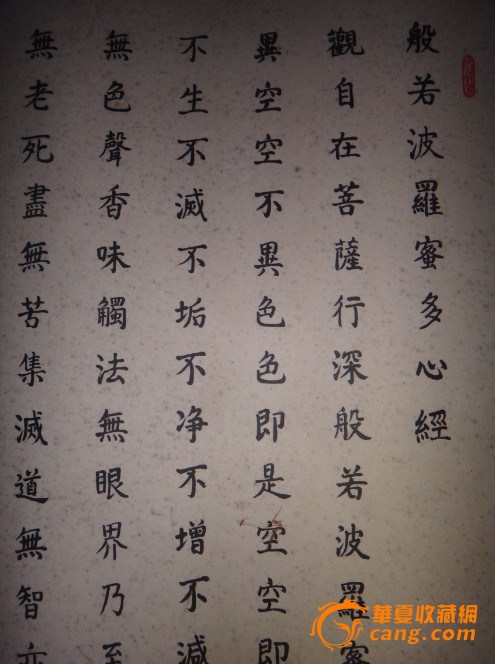 般若波羅蜜多心經
觀自在菩薩行深般若波羅蜜
異空空不異色色即是空空即
不生不滅不垢不净不增不減
無色聲香味觸法無眼界乃至
無老死盡無苦集滅道無智亦
華夏收藏網
cang.com